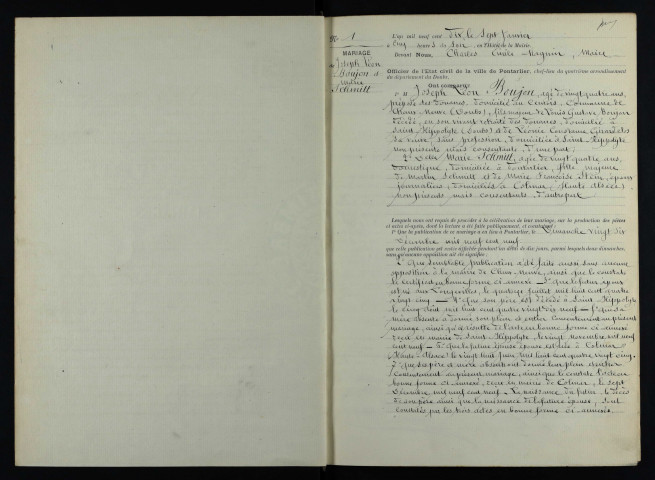 N° 1
MARIAGE
de Joseph Léon
Boujon &
Marie
Schmitt
L'an mil neuf cent dix, le Sept Janvier
à cinq heures du soir, en l'Hôtel de la Mairie
Devant Nous, Charles Emile Magnin, Maire
Officier de l'Etat civil de la ville de Pontarlier, chef-lieu du quatrième arrondissement
du département du Doubs.
Ont comparu
1° M Joseph Léon Boujon, âgé de vingt quatre ans,
préposé des douanes, domicilié au Cernois, Commune de
Chaux-Neuve (Doubs), fils majeur de Louis Gustave Boujon
décédé, en son vivant retraité des douanes, domicilié à
Saint-Hippolyte (Doubs) et de Léonie Constance
sa veuve, sans profession, domiciliée à Saint-Hippolyte
non présente mais consentante, d'une part;
2° Delle Marie Schmitt, âgée de vingt quatre ans,
domestique, domiciliée à Pontarlier, fille majeure
de Martin Schmitt et de Marie Françoise Stein, époux
journaliers, domiciliés à Colmar, (Haute Alsace)
non présents, mais consentants, d'autre part
Lesquels nous ont requis de procéder à la célébration de leur mariage, sur la production des pièces
et actes ci-après, dont la lecture a été faite publiquement, et constatant:
1° Que la publication de ce mariage a eu lieu à Pontarlier, le Dimanche vingt six
Décembre mil neuf cent neuf
que cette publication est restée affichée pendant les délai de dix jours, parmi lesquels deux dimanches,
sans qu'aucune opposition ait été signifiée;
2° Que semblable publication a été faite aussi sans aucune
opposition à la mairie de Chaux-Neuve, ainsi que le constate
le certificat en bonne forme ci annexé - 3° que le futur époux
est né aux Longevilles, le quatorze juillet mil huit cent quatre
vingt cinq - 4° Que son père est décédé à Saint-Hippolyte
le cinq août mil huit cent quatre vingt dix neuf - 5° Que sa
mère absente a donné son plein et entier consentement au présent
mariage, ainsi qu'il résulte de l'acte en bonne forme ci annexé
reçu en mairie de Saint-Hippolyte le vingt novembre mil neuf
cent neuf - 6° que la future épouse est née à Colmar
(Haute-Alsace) le vingt huit juin mil huit cent quatre vingt cinq,
7° Que ses père et mère absents ont donné leur plein et entier
consentement au présent mariage, ainsi que le constate l'acte en
bonne forme ci annexé, reçu en mairie de Colmar, le sept
Décembre mil neuf cent neuf - La naissance du futur, le décès
de son père ainsi que la naissance de la future épouse, sont
constatés par les trois actes en bonne forme ci annexés